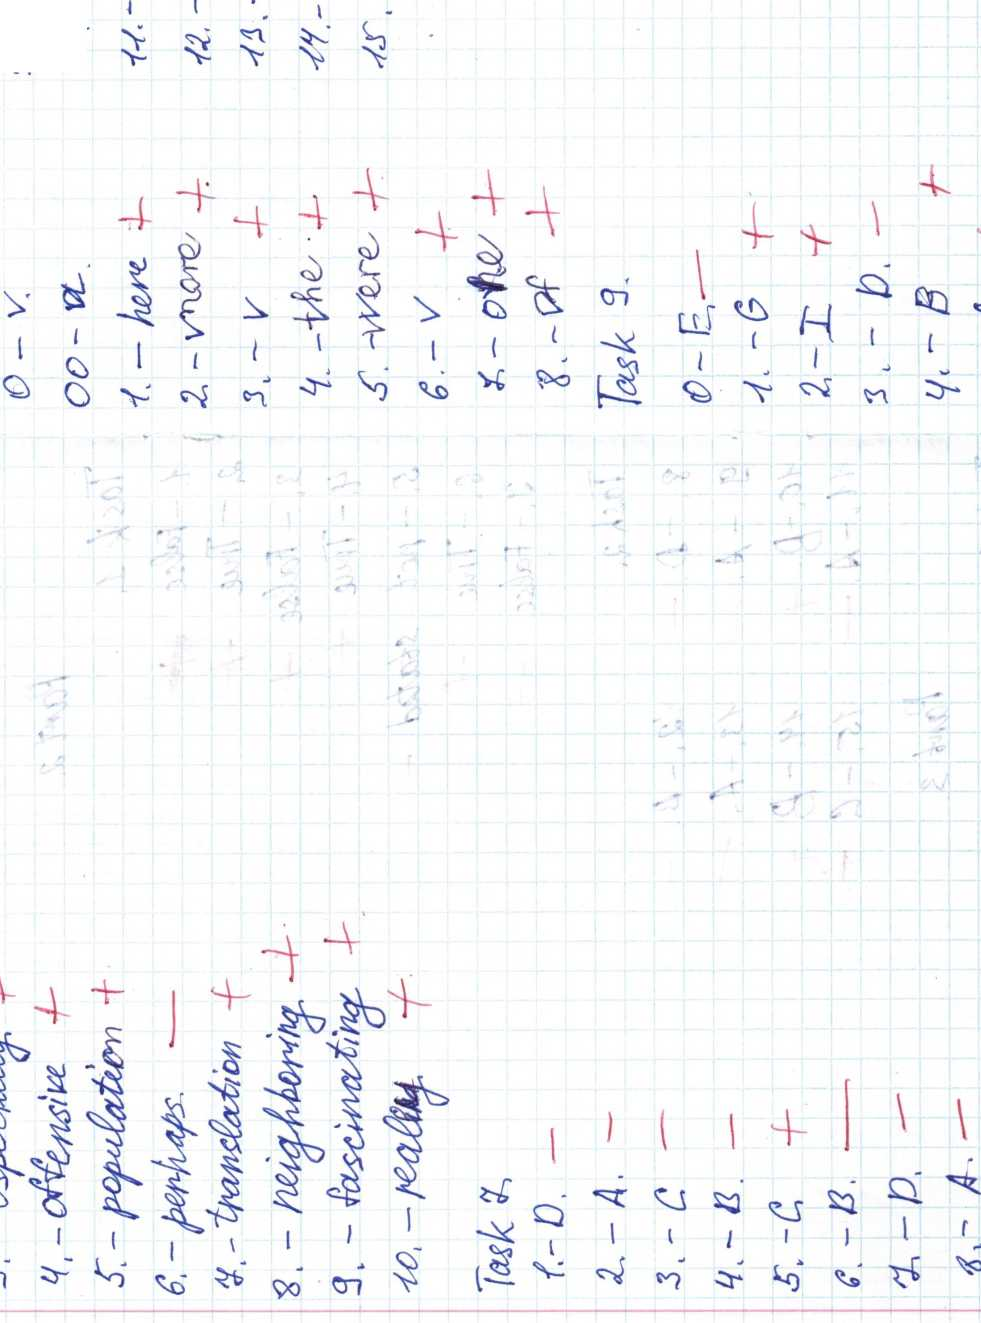 4. - offensive +
5. - population +
6. - perhaps. —
7. - translation +
8. - neighboring +
9. - fascinating +
10. - really +
Task 7
1. - D. —
2. - A. —
3. - C —
4. - B. —
5. - C +
6. - B. —
7. - D. —
8. - A. —
0 - v.
00 - a.
1. - here +
2. - more +
3. - v +
4. - the +
5. - were +
6. - v +
7. - one +
8. - of +
Task 9.
0 - E —
1. - G +
2. - I +
3. - D. —
4. - B +
11. -
12. -
13. -
14. -
15.